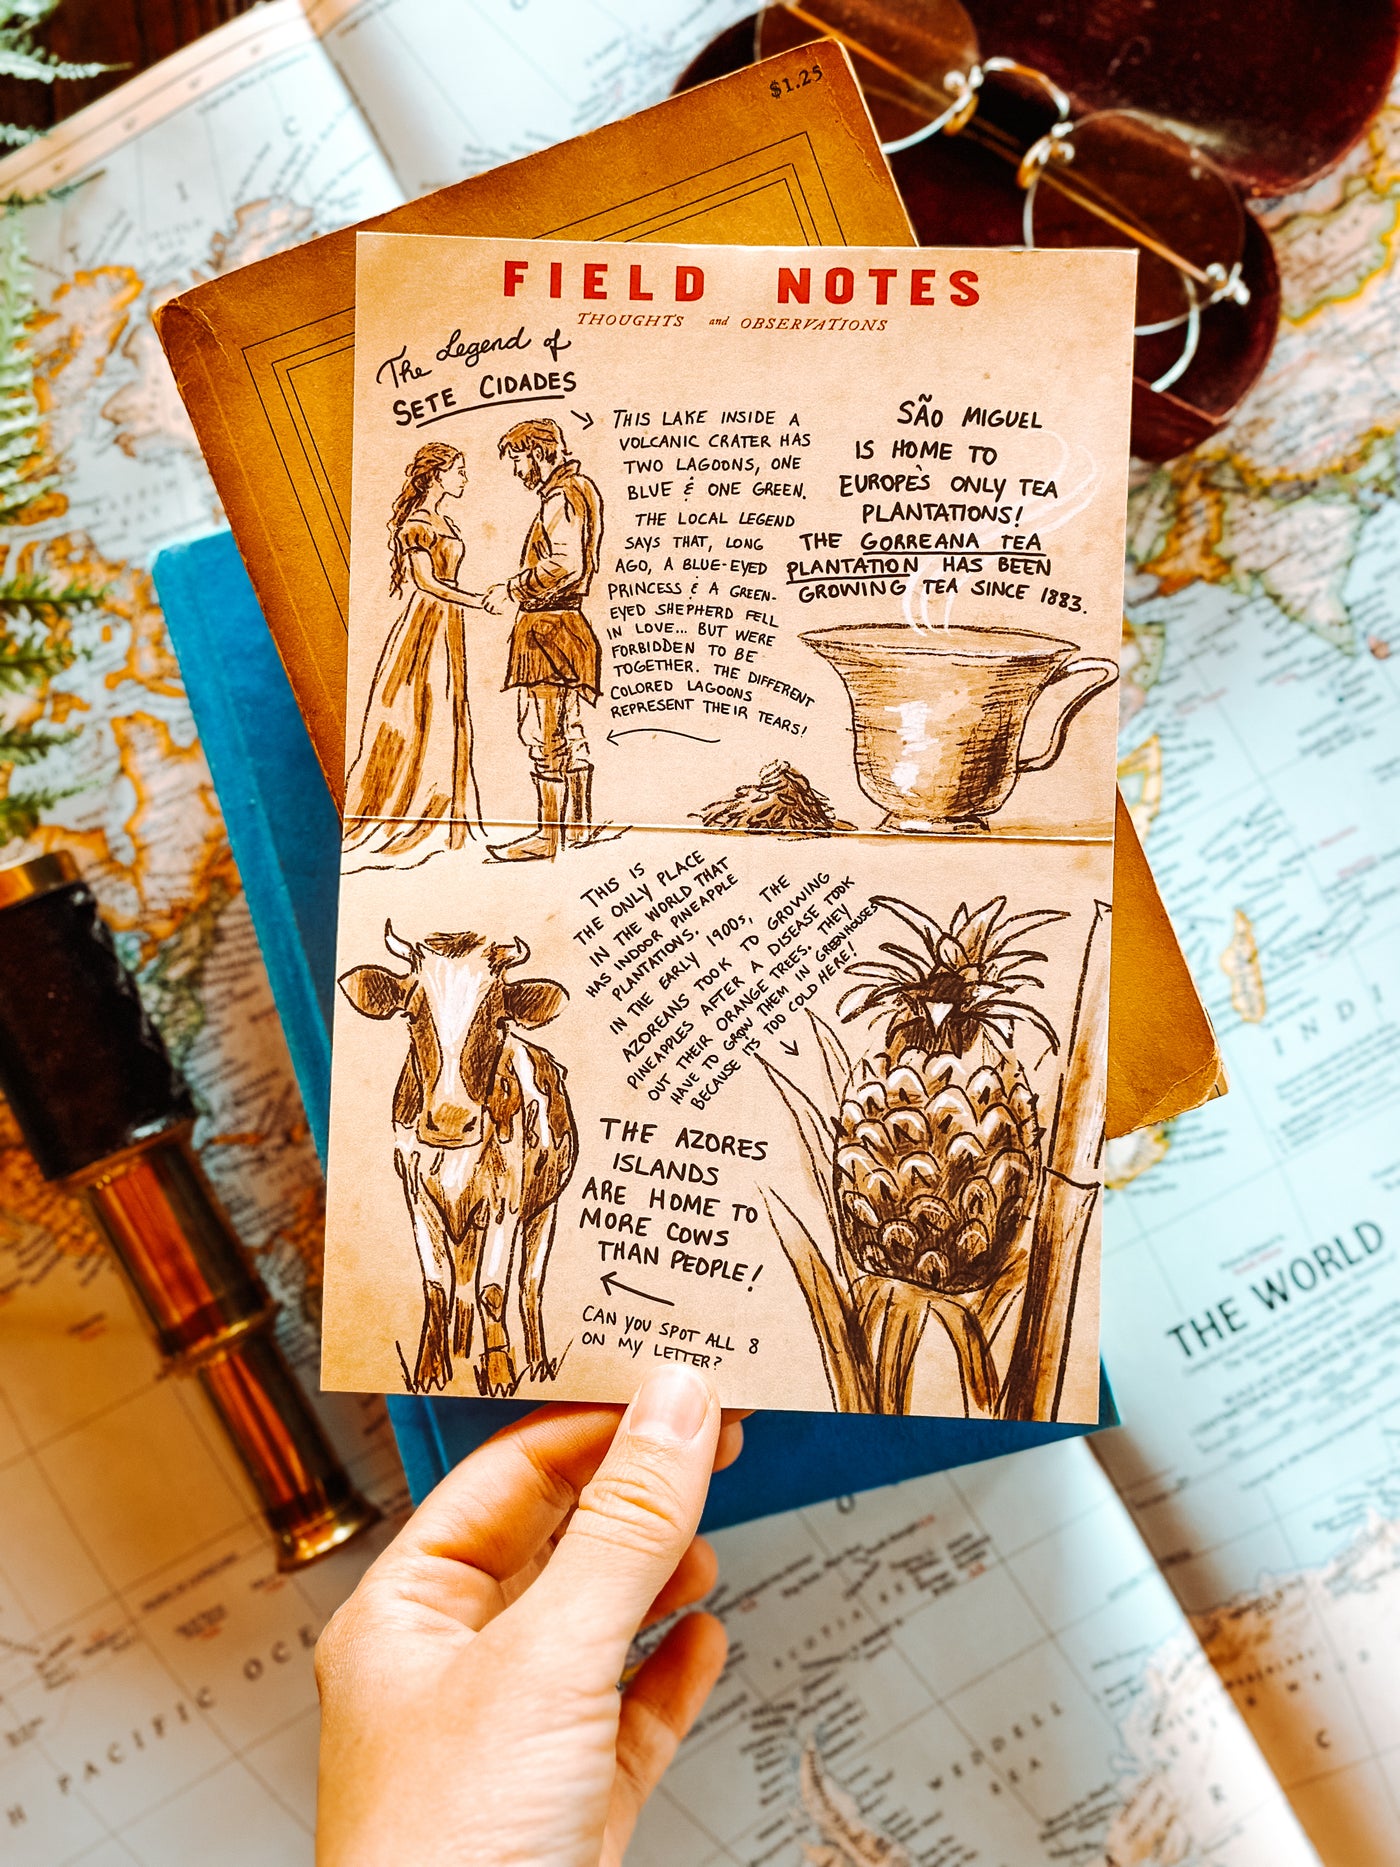 $1.25
FIELD NOTES
THOUGHTS and OBSERVATIONS
The Legend of
SETE CIDADES
THIS LAKE INSIDE A
VOLCANIC CRATER HAS
TWO LAGOONS, ONE
BLUE & ONE GREEN.
THE LOCAL LEGEND
SAYS THAT, LONG
AGO, A BLUE-EYED
PRINCESS & A GREEN-
EYED SHEPHERD FELL
IN LOVE... BUT WERE
FORBIDDEN TO BE
TOGETHER. THE DIFFERENT
COLORED LAGOONS
REPRESENT THEIR TEARS!
SÃO MIGUEL
IS HOME TO
EUROPE'S ONLY TEA
PLANTATIONS!
THE GORREANA TEA
PLANTATION HAS BEEN
GROWING TEA SINCE 1883.
THIS IS
THE ONLY PLACE
IN THE WORLD THAT
HAS INDOOR PINEAPPLE
PLANTATIONS.
IN THE EARLY 1900s, THE
AZOREANS TOOK TO GROWING
PINEAPPLES AFTER A DISEASE TOOK
OUT THEIR ORANGE TREES. THEY
HAVE TO GROW THEM IN GREENHOUSES
BECAUSE ITS TOO COLD HERE!
THE AZORES
ISLANDS
ARE HOME TO
MORE COWS
THAN PEOPLE!
CAN YOU SPOT ALL 8
ON MY LETTER?
THE WORLD
INDI
PACIFIC OCE
WEDDELL
SEA